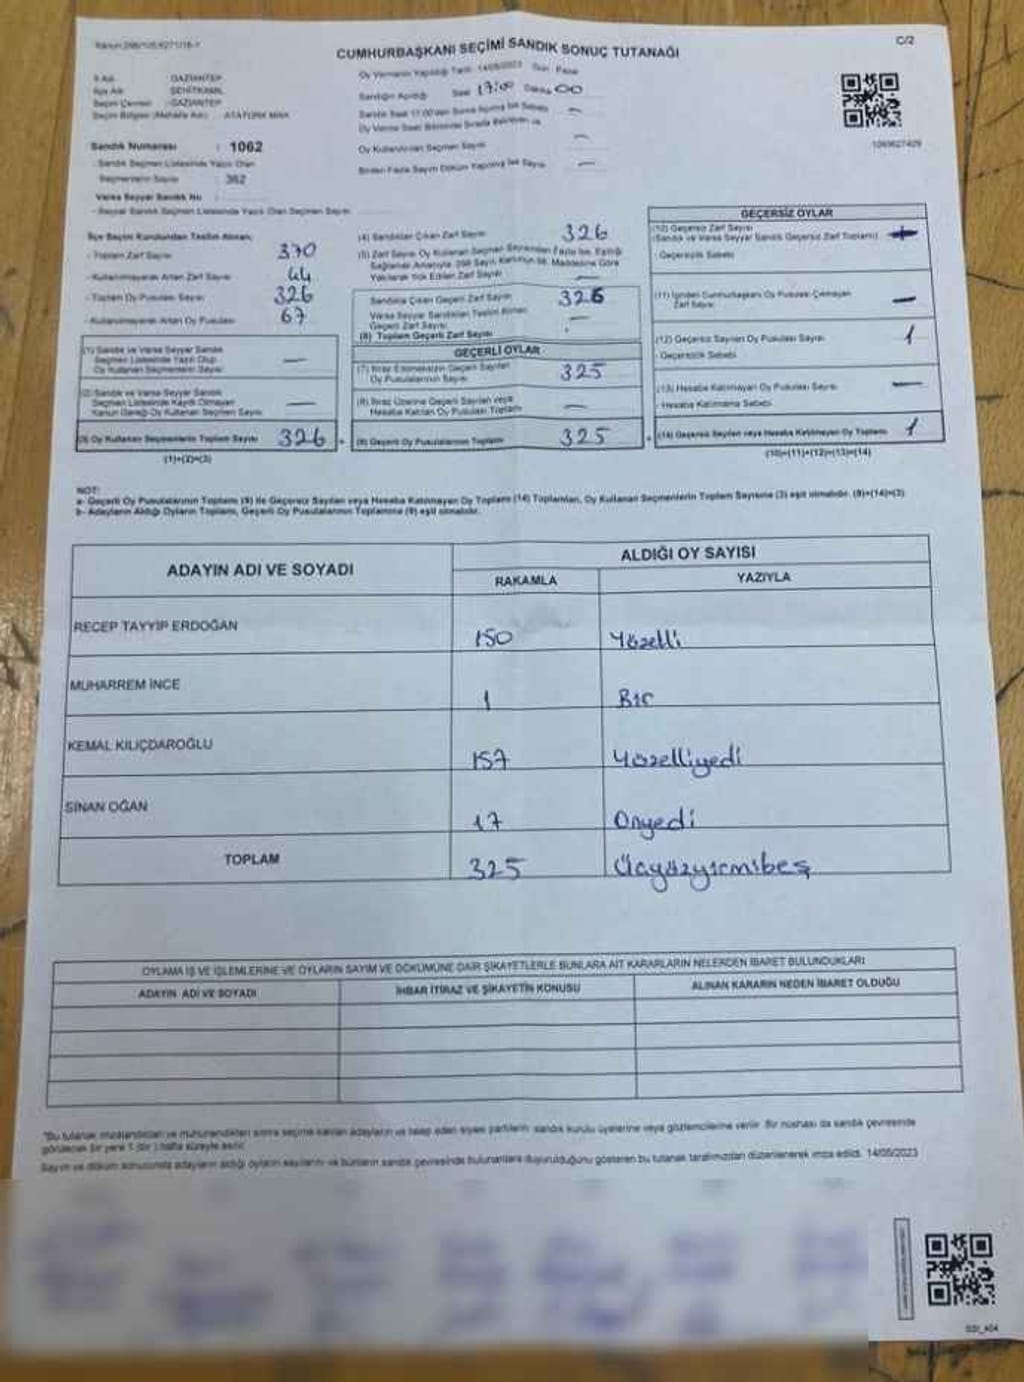 C/2
CUMHURBAŞKANI SEÇİMİ SANDIK SONUÇ TUTANAĞI
İl Adı GAZİANTEP
İlçe Adı ŞEHİTKAMİL
Seçim Çevresi GAZİANTEP
Seçim Bölgesi (Mahalle Adı) ATATÜRK MAH.
Oy Vermenin Yapıldığı Tarih 14/05/2023 Gün Pazar
Sandığın Açıldığı Saat 17:00 Dakika 00
Sandık Numarası : 1062
Sandık Seçmen Listesinde Yazılı Olan
Seçmenlerin Sayısı : 382
Varsa Seyyar Sandık No :
- Seyyar Sandık Seçmen Listesinde Yazılı Olan Seçmen Sayısı
Oy Kullandırılan Seçmen Sayısı —
Birden Fazla Sayım Döküm Yapılmış İse Sayısı —
İlçe Seçim Kurulundan Teslim Alınan;
- Toplam Zarf Sayısı 370
- Kullanılmayarak Artan Zarf Sayısı 44
- Toplam Oy Pusulası Sayısı 326
- Kullanılmayarak Artan Oy Pusulası 67
(1) Sandık ve Varsa Seyyar Sandık
Seçmen Listesinde Yazılı Olup
Oy Kullanan Seçmenlerin Sayısı —
(2) Sandık ve Varsa Seyyar Sandık
Seçmen Listesinde Kayıtlı Olmayan
Kanun Gereği Oy Kullanan Seçmen Sayısı —
(3) Oy Kullanan Seçmenlerin Toplam Sayısı 326
(1)+(2)=(3)
(4) Sandıktan Çıkan Zarf Sayısı 326
(5) Zarf Sayısı Oy Kullanan Seçmen Sayısından Fazla İse, Eşitliği
Sağlamak Amacıyla 298 Sayılı Kanunun 98. Maddesine Göre
Yakılarak Yok Edilen Zarf Sayısı —
Sandıkta Çıkan Geçerli Zarf Sayısı 326
Varsa Seyyar Sandıktan Teslim Alınan
Geçerli Zarf Sayısı —
(6) Toplam Geçerli Zarf Sayısı
GEÇERLİ OYLAR
(7) İtiraz Edilmeksizin Geçerli Sayılan
Oy Pusulalarının Sayısı 325
(8) İtiraz Üzerine Geçerli Sayılan veya
Hesaba Katılan Oy Pusulaları Toplamı —
(9) Geçerli Oy Pusulalarının Toplamı 325
GEÇERSİZ OYLAR
(10) Geçersiz Zarf Sayısı
(Sandık ve Varsa Seyyar Sandık Geçersiz Zarf Toplamı)
- Geçersizlik Sebebi
(11) İçinden Cumhurbaşkanı Oy Pusulası Çıkmayan
Zarf Sayısı —
(12) Geçersiz Sayılan Oy Pusulası Sayısı 1
- Geçersizlik Sebebi
(13) Hesaba Katılmayan Oy Pusulası Sayısı —
- Hesaba Katılmama Sebebi
(14) Geçersiz Sayılan veya Hesaba Katılmayan Oy Toplamı 1
(10)+(11)+(12)+(13)=(14)
NOT:
a- Geçerli Oy Pusulalarının Toplamı (9) ile Geçersiz Sayılan veya Hesaba Katılmayan Oy Toplamı (14) Toplamları, Oy Kullanan Seçmenlerin Toplam Sayısına (3) eşit olmalıdır. (9)+(14)=(3)
b- Adayların Aldığı Oyların Toplamı, Geçerli Oy Pusulalarının Toplamına (9) eşit olmalıdır.
ADAYIN ADI VE SOYADI
ALDIĞI OY SAYISI
RAKAMLA YAZIYLA
RECEP TAYYİP ERDOĞAN 150 Yüzelli
MUHARREM İNCE 1 Bir
KEMAL KILIÇDAROĞLU 157 Yüzelliyedi
SİNAN OĞAN 17 Onyedi
TOPLAM 325 Üçyüzyirmibeş
OYLAMA İŞ VE İŞLEMLERİNE VE OYLARIN SAYIM VE DÖKÜMÜNE DAİR ŞİKAYETLERLE BUNLARA AİT KARARLARIN NELERDEN İBARET BULUNDUKLARI
ADAYIN ADI VE SOYADI İHBAR İTİRAZ VE ŞİKAYETİN KONUSU ALINAN KARARIN NEDEN İBARET OLDUĞU
*Bu tutanak imzalandıktan ve mühürlendikten sonra seçime katılan adayların ve talep eden siyasi partilerin sandık kurulu üyelerine veya gözlemcilerine verilir. Bir nüshası da sandık çevresinde
görülecek bir yere 1 (bir) hafta süreyle asılır.
Sayım ve döküm sonucunda adayların aldığı oyların sayılarını ve bunların sandık çevresinde bulunanlara duyurulduğunu gösteren bu tutanak tarafımızdan düzenlenerek imza edildi. 14/05/2023